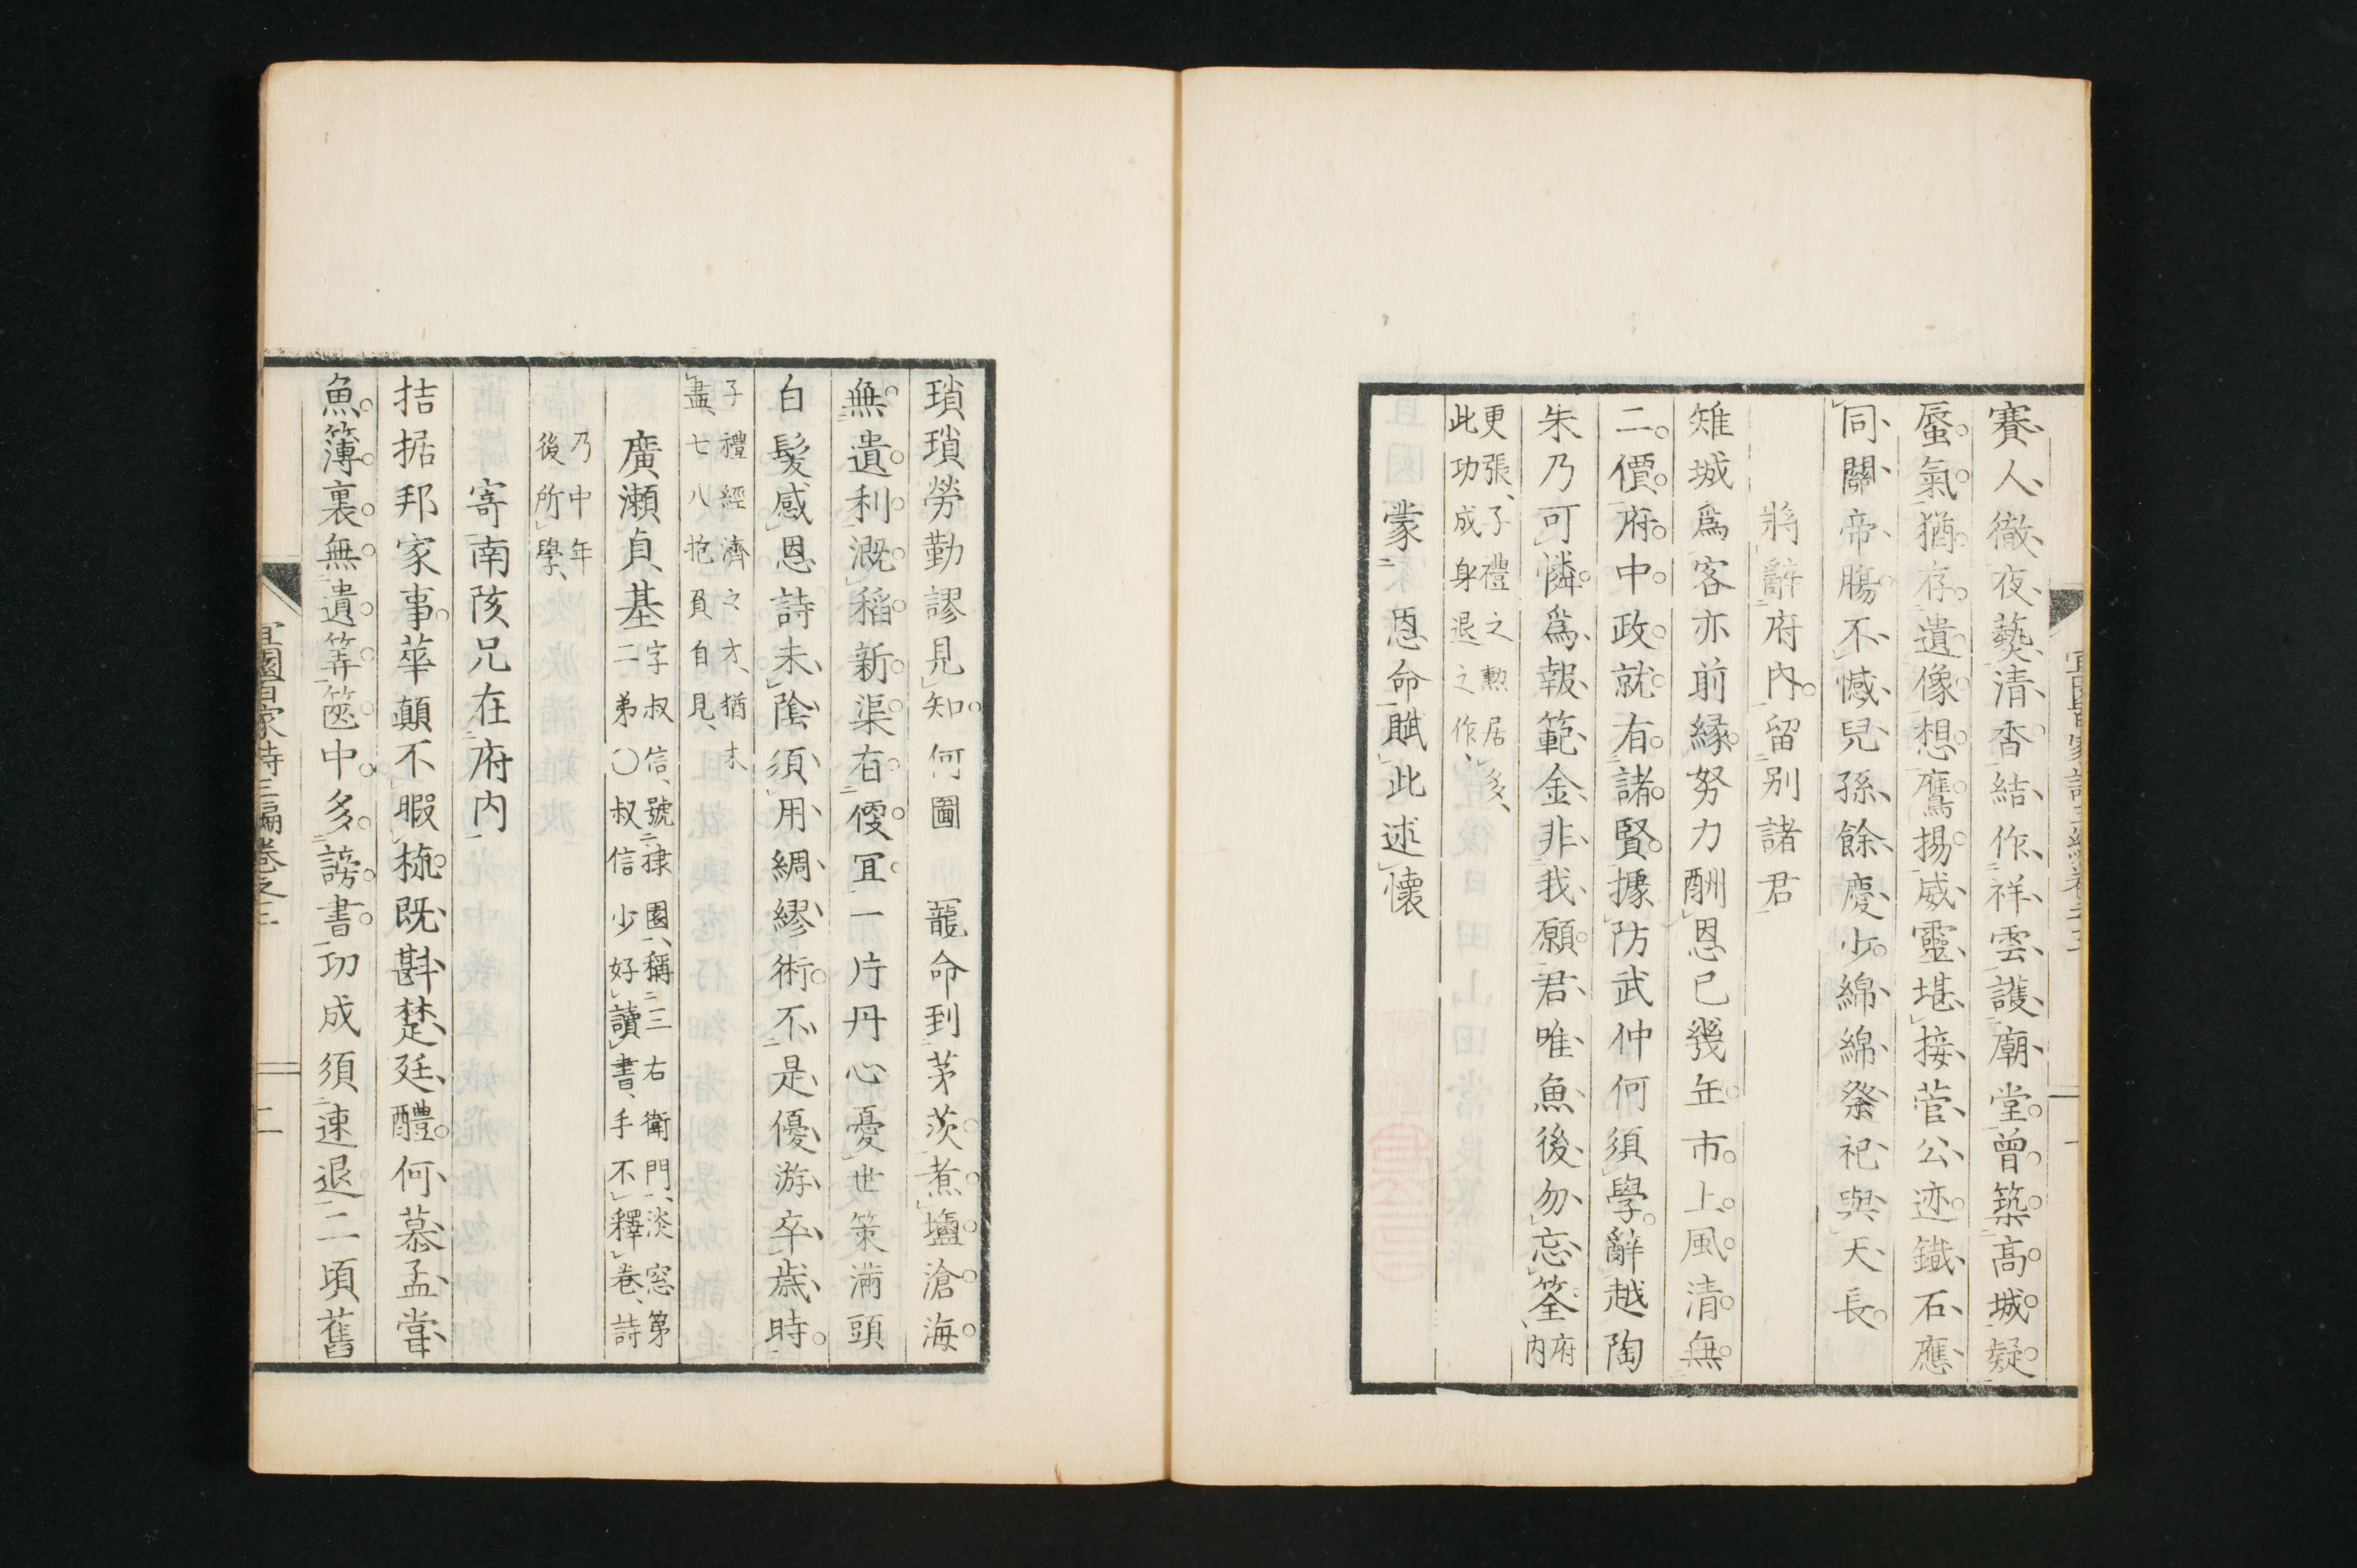 賽人徹夜爇清香結作祥雲護廟堂曾築高城疑
蜃氣猶存遺像想鷹揚威靈堪接菅公迹鐵石應
同關帝膓不憾兒孫餘慶少綿綿祭祀與天長
將辭府內留別諸君
雉城爲客亦前縁努力酬恩已幾年市上風清無
二價府中政就有諸賢據防武仲何須學辭越陶
朱乃可憐爲報範金非我願君唯魚後勿忘筌府
內
更張子禮之勲居多
此功成身退之作
蒙恩命賦此述懷
瑣瑣勞勤謬見知何圖寵命到茅茨煮鹽滄海
無遺利漑稻新渠有便冝一片丹心憂世策滿頭
白髮感恩詩未隂須用綢繆術不是優游卒歳時
子禮經濟之才猶未
盡七八抱負自見
廣瀬貞基
字叔信號棣園稱三右衛門淡窓第
二弟〇叔信少好讀書手不釋卷詩
乃中年
後所學
寄南陔兄在府内
拮据邦家事華顛不暇梳既斟楚廷醴何慕孟嘗
魚簿裏無遺筭篋中多謗書功成須速退二頃舊
宜園百家詩三編卷之三
二